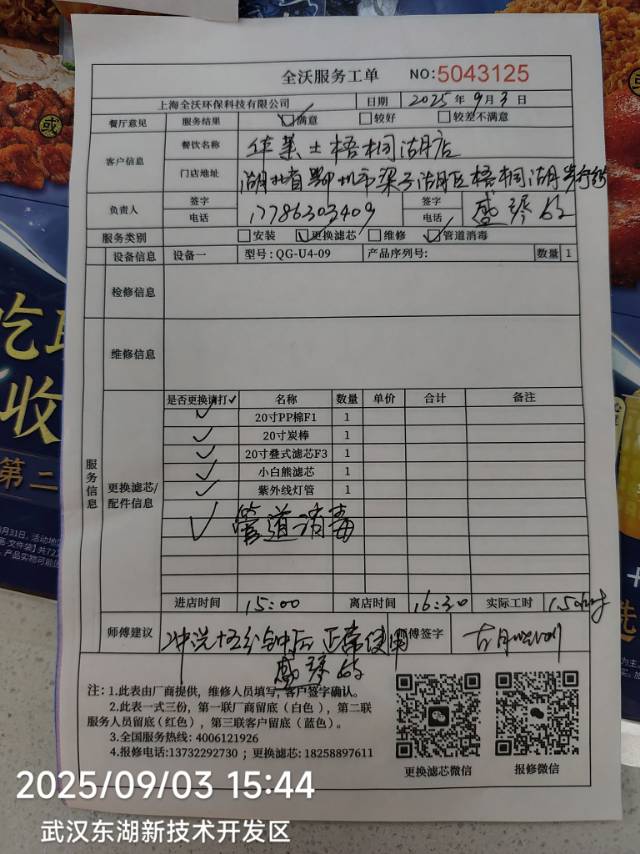 全沃服务工单 NO:5043125
上海全沃环保科技有限公司 日期 2025年9月3日
餐厅意见 服务结果 满意 较好 较差不满意
客户信息 餐饮名称 华莱士梧桐湖店
门店地址 湖北省鄂州市梁子湖区梧桐湖
负责人 签字 电话 17786303409 签字 电话
服务类别 安装 更换滤芯 维修 管道消毒
设备信息 设备一 型号:QG-U4-09 产品序列号: 数量 1
检修信息
维修信息
服务信息
更换滤芯/配件信息
是否更换请打✓ 名称 数量 单价 合计 备注
✓ 20寸PP棉F1 1
✓ 20寸炭棒 1
✓ 20寸叠式滤芯F3 1
✓ 小白熊滤芯 1
✓ 紫外线灯管 1
✓ 管道消毒
进店时间 15:00 离店时间 16:30 实际工时 1.5
师傅建议 冲洗十五分钟后正常使用 师傅签字
注: 1.此表由厂商提供,维修人员填写,客户签字确认。
2.此表一式三份,第一联厂商留底(白色),第二联
服务人员留底(红色),第三联客户留底(蓝色)。
3.全国服务热线: 4006121926
4.报修电话:13732292730 ; 更换滤芯: 18258897611
更换滤芯微信 报修微信
2025/09/03 15:44
武汉东湖新技术开发区
或
或
收
第二
选